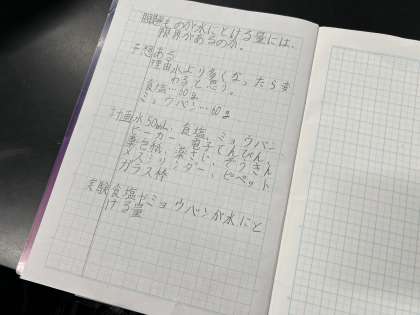 問題ものが水にとける量には、
限界があるのか。
予想ある
理由水より多くなったら変
わると思う。
食塩…30g
ミョウバン…60g
計画水50mL、食塩、ミョウバン
ビーカー、電子てんびん、
薬包紙、薬さじ、ぞうきん
メスシリンダー、ピペット
ガラス棒
実験食塩やミョウバンが水にと
ける量